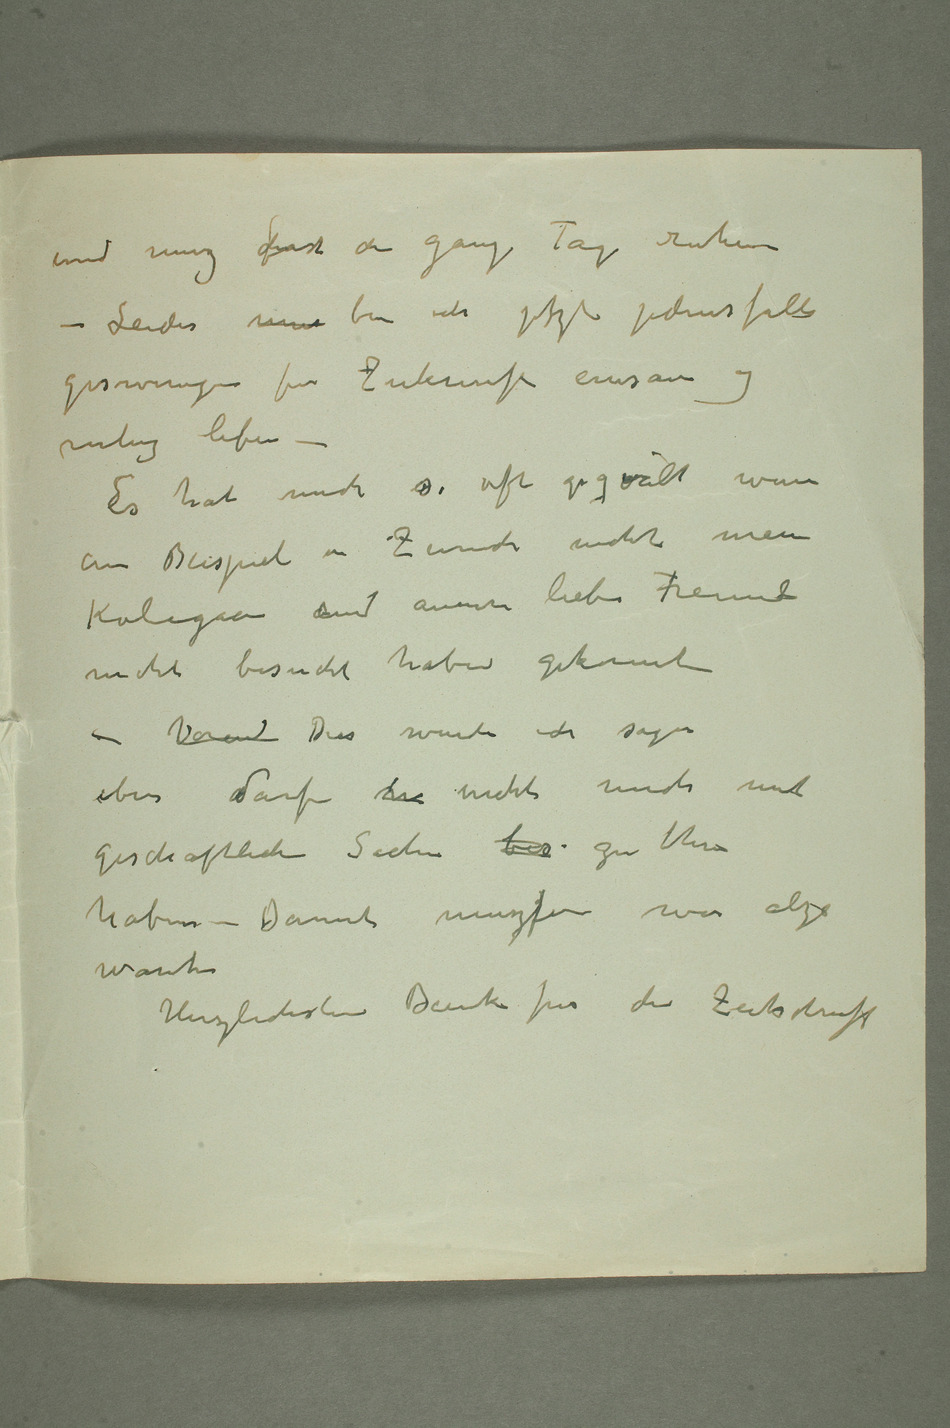 und musz fast den ganze Tag ruhen
– Leider bin ich jetzt jedensfalls
geswungen für Zukunft einsam og
ruhig leben –
Es hat mich so oft geqvält wenn
am Beispiel in Zurich nicht mein
Kolegaen und annere liebe Freund
nicht besucht haben gekonnt
– Dies wurde ich sagen
eben darf nicht mich mit
geschaftlich Sachen zu thun
haben – Damit muszen wir alge
warten
Herzlichsten Dank für die Zeitschrift